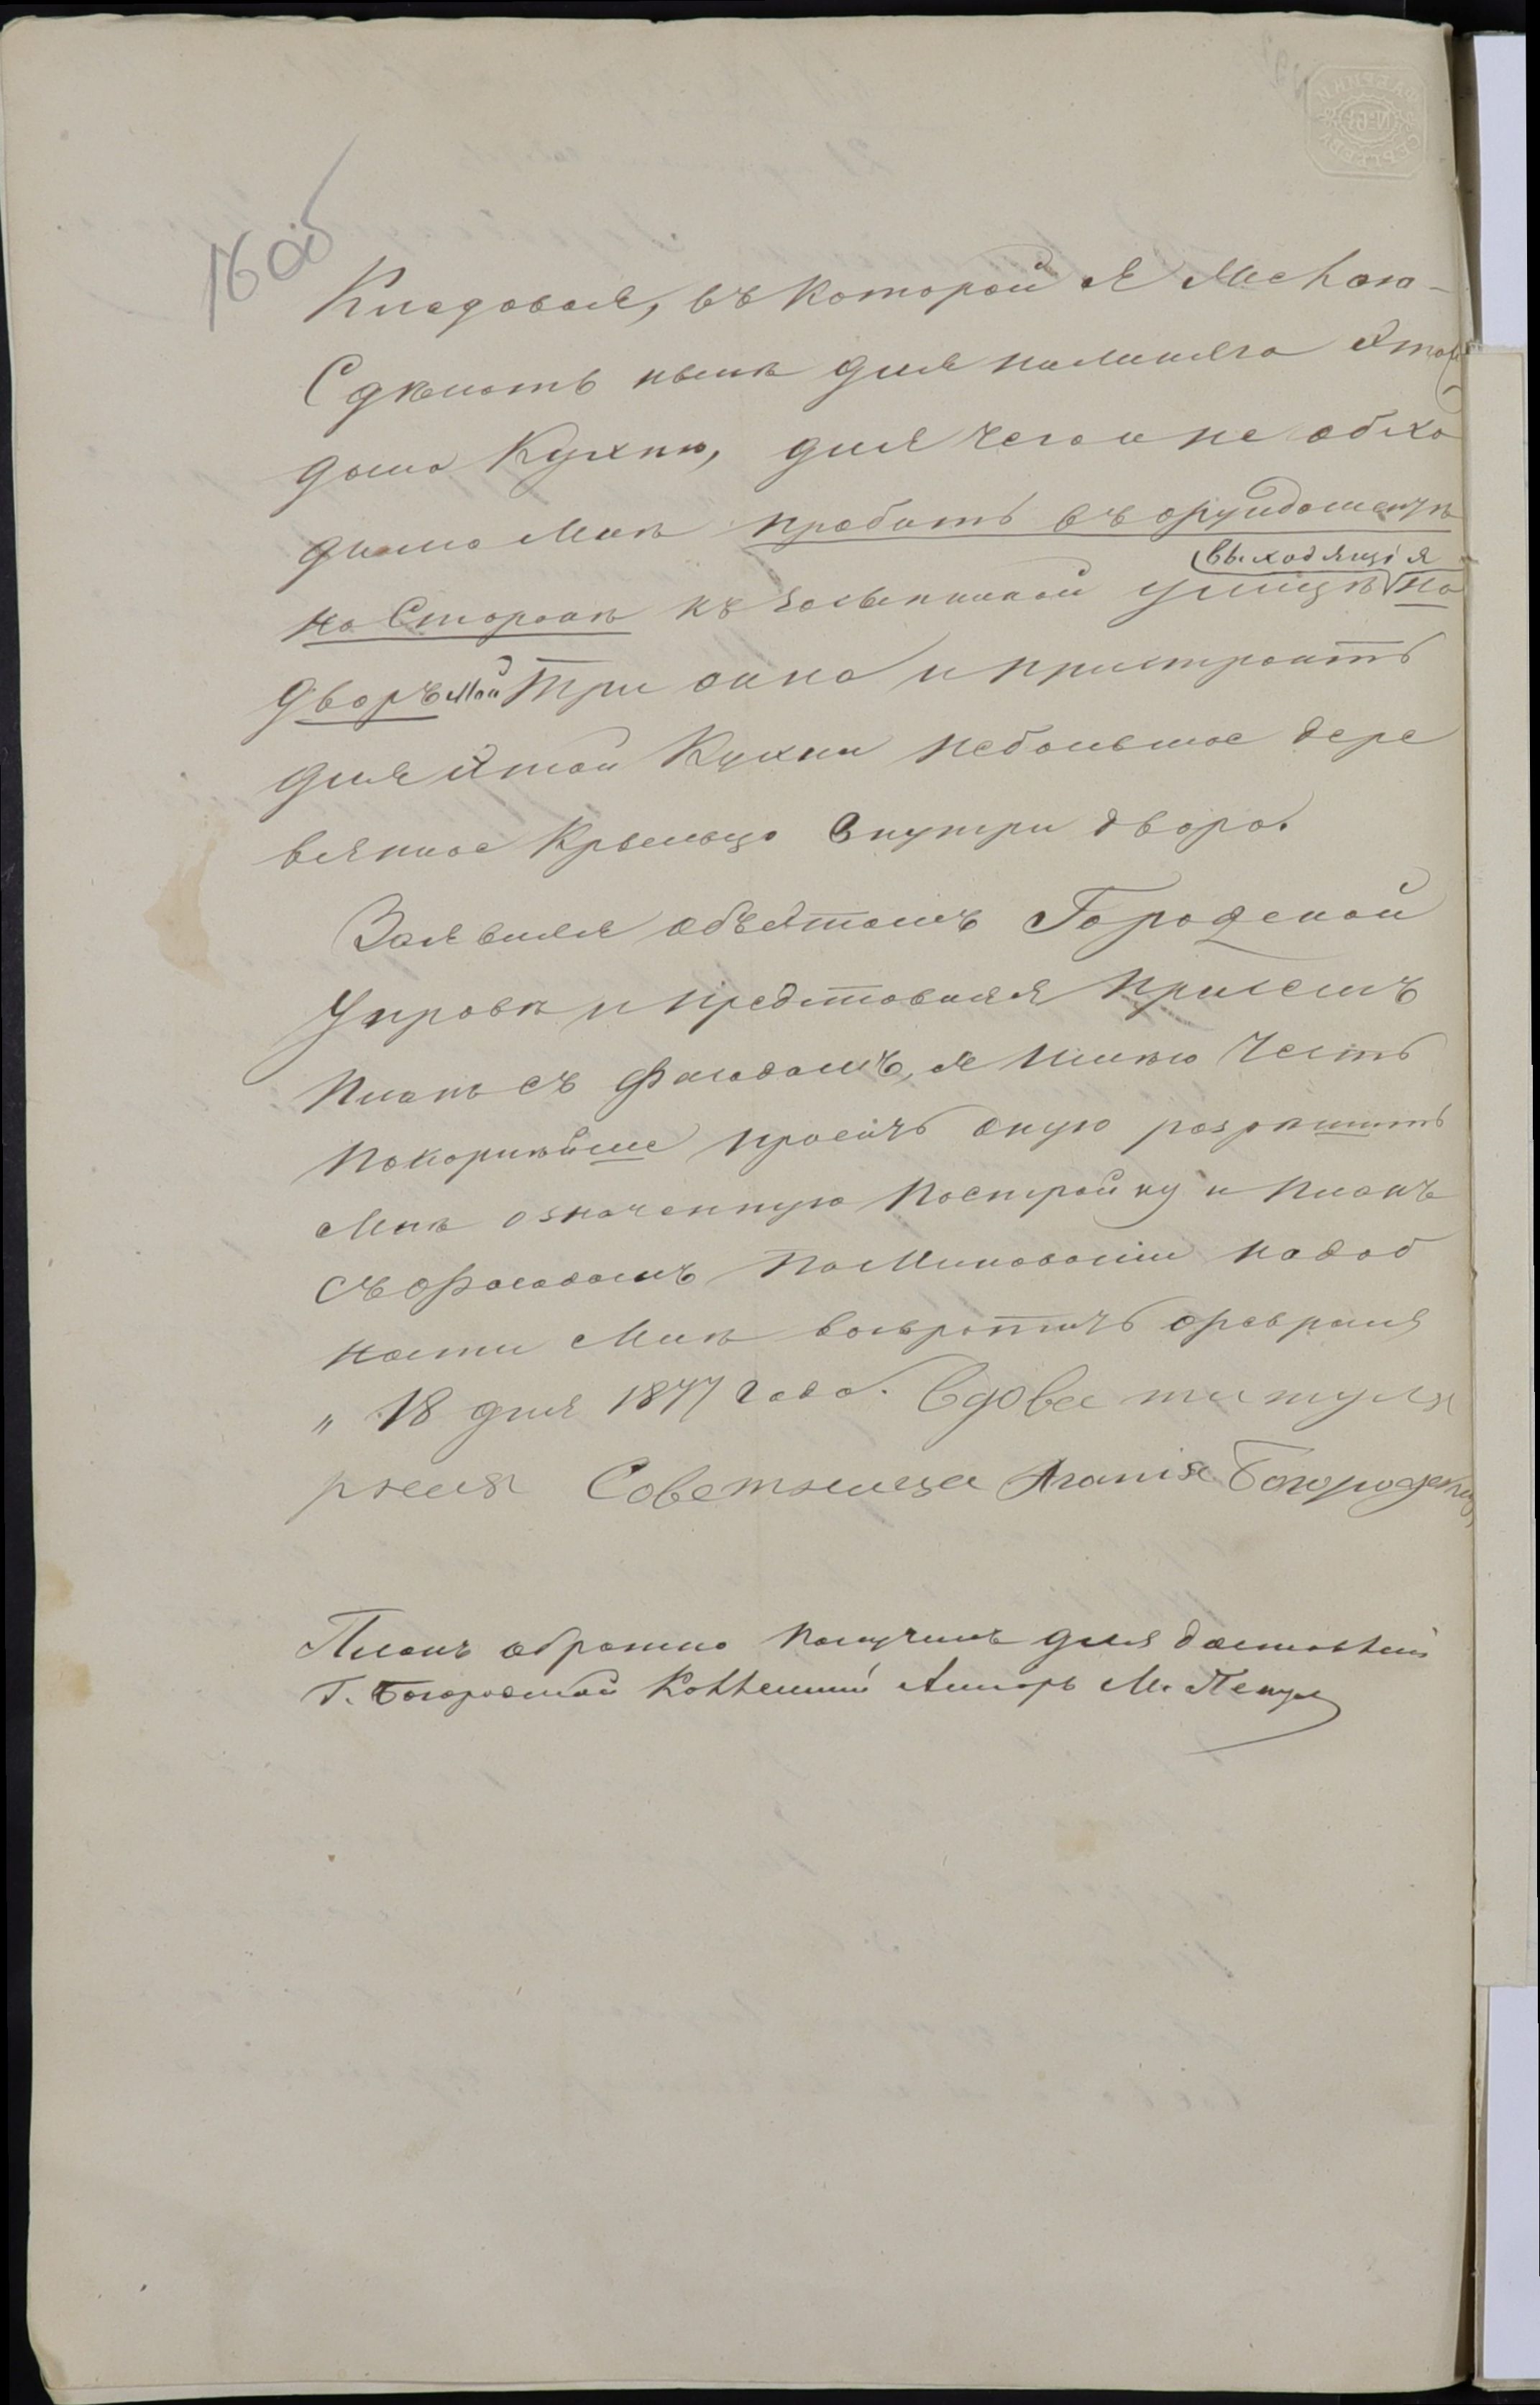 16 об
Кладовая, въ которой я желаю
Сделать ныне для нижняго Этажа
дома Кухню, для чего и не обхо
димо мнѣ пробить въ фундаментѣ
выходящія
на Сторонѣ къ улицѣ на
дворъ мой три окна и пристроить
для Этой Кухни небольшое дере
вянное Крыльцо внутри двора.
Заявляя объ Этомъ Городской
Управѣ и представляя при семъ
планъ съ фасадомъ, я имѣю честь
покорнѣйше просить оную разрѣшить
мнѣ означенную постройку и планъ
съ фасадомъ по миновании надоб
ности мнѣ возвратить февраля
„ 18 дня 1877 года. Вдова титуля
рная Советница Агапія Богородская
Планъ обратно получилъ для доставки
Г. Богородской Коллежскій Ассесоръ М.